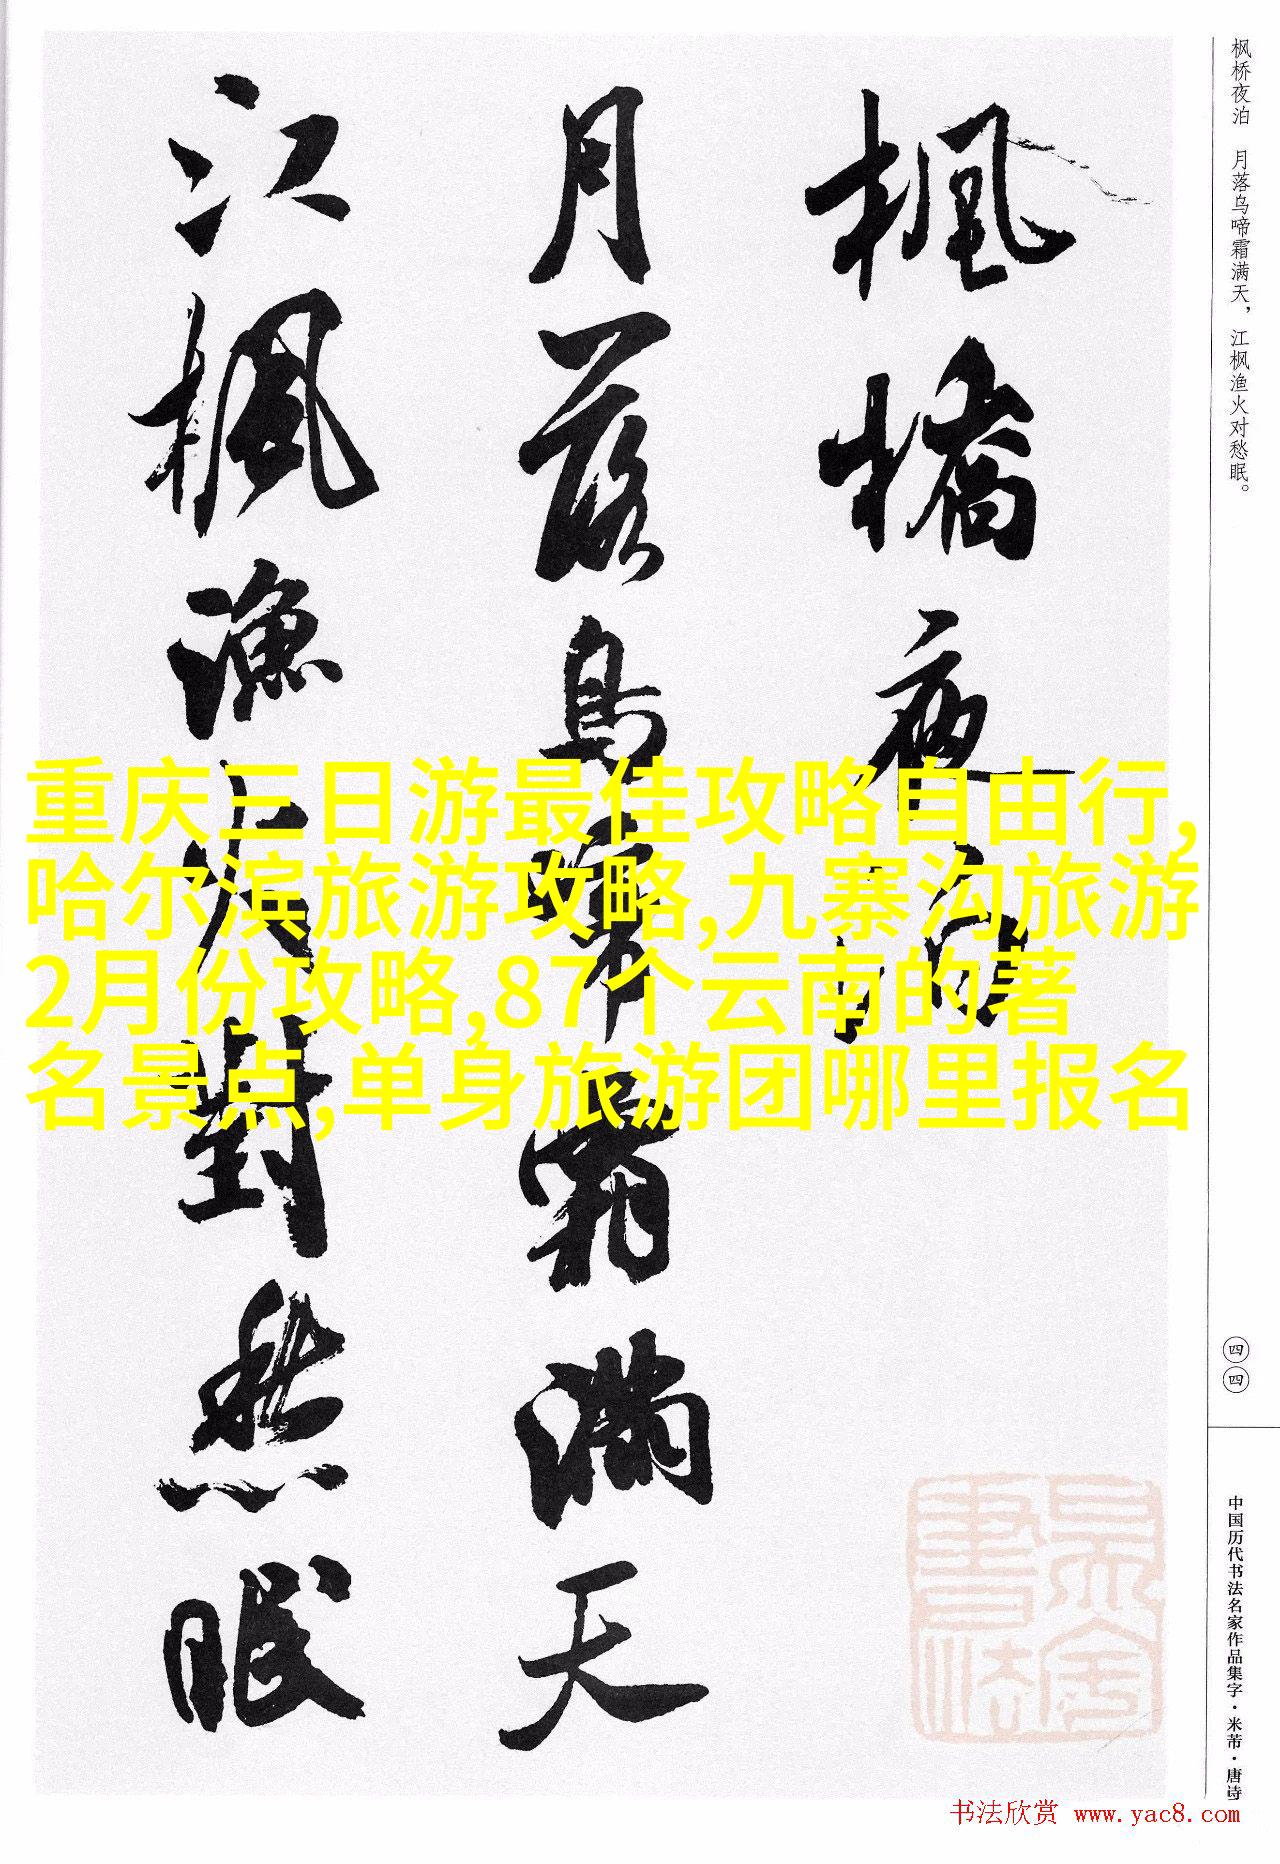 枫桥夜泊　月落乌啼霜满天，江枫渔火对愁眠。
四四
中国历代书法名家作品集字·米芾·唐诗
楓橋夜泊
月落烏啼霜滿天
江楓漁火對愁眠
重庆三日游最佳攻略自由行,
哈尔滨旅游攻略,九寨沟旅游
2月份攻略,87个云南的著
名景点,单身旅游团哪里报名
书法欣赏 www.yac8.com